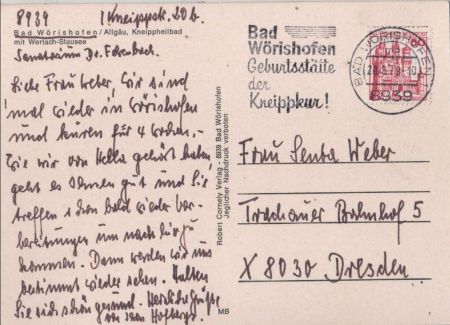 8939 Kneippstr. 20b.
Bad Wörishofen / Allgäu, Kneippheilbad
mit Wertach-Stausee
Sanatorium Dr.
Liebe Frau Weber, wir sind
mal wieder in Wörishofen
und kuren für 4 Wochen.
Wie wir von Hella gehört haben
geht es Ihnen gut und Sie
treffen schon bald wieder Vor-
bereitungen um nach hier zu
kommen. Dann werden wir uns
bestimmt wieder sehen. Halten
Sie sich schön gesund. Herzliche Grüße
von Ihren
Robert Cornely Verlag - 8939 Bad Wörishofen
Jeglicher Nachdruck verboten
MB
Bad
Wörishofen
Geburtsstätte
der
Kneippkur!
BAD WÖRISHOFEN
8939
Frau Senta Weber
Trachauer Bahnhof 5
X 8030 Dresden